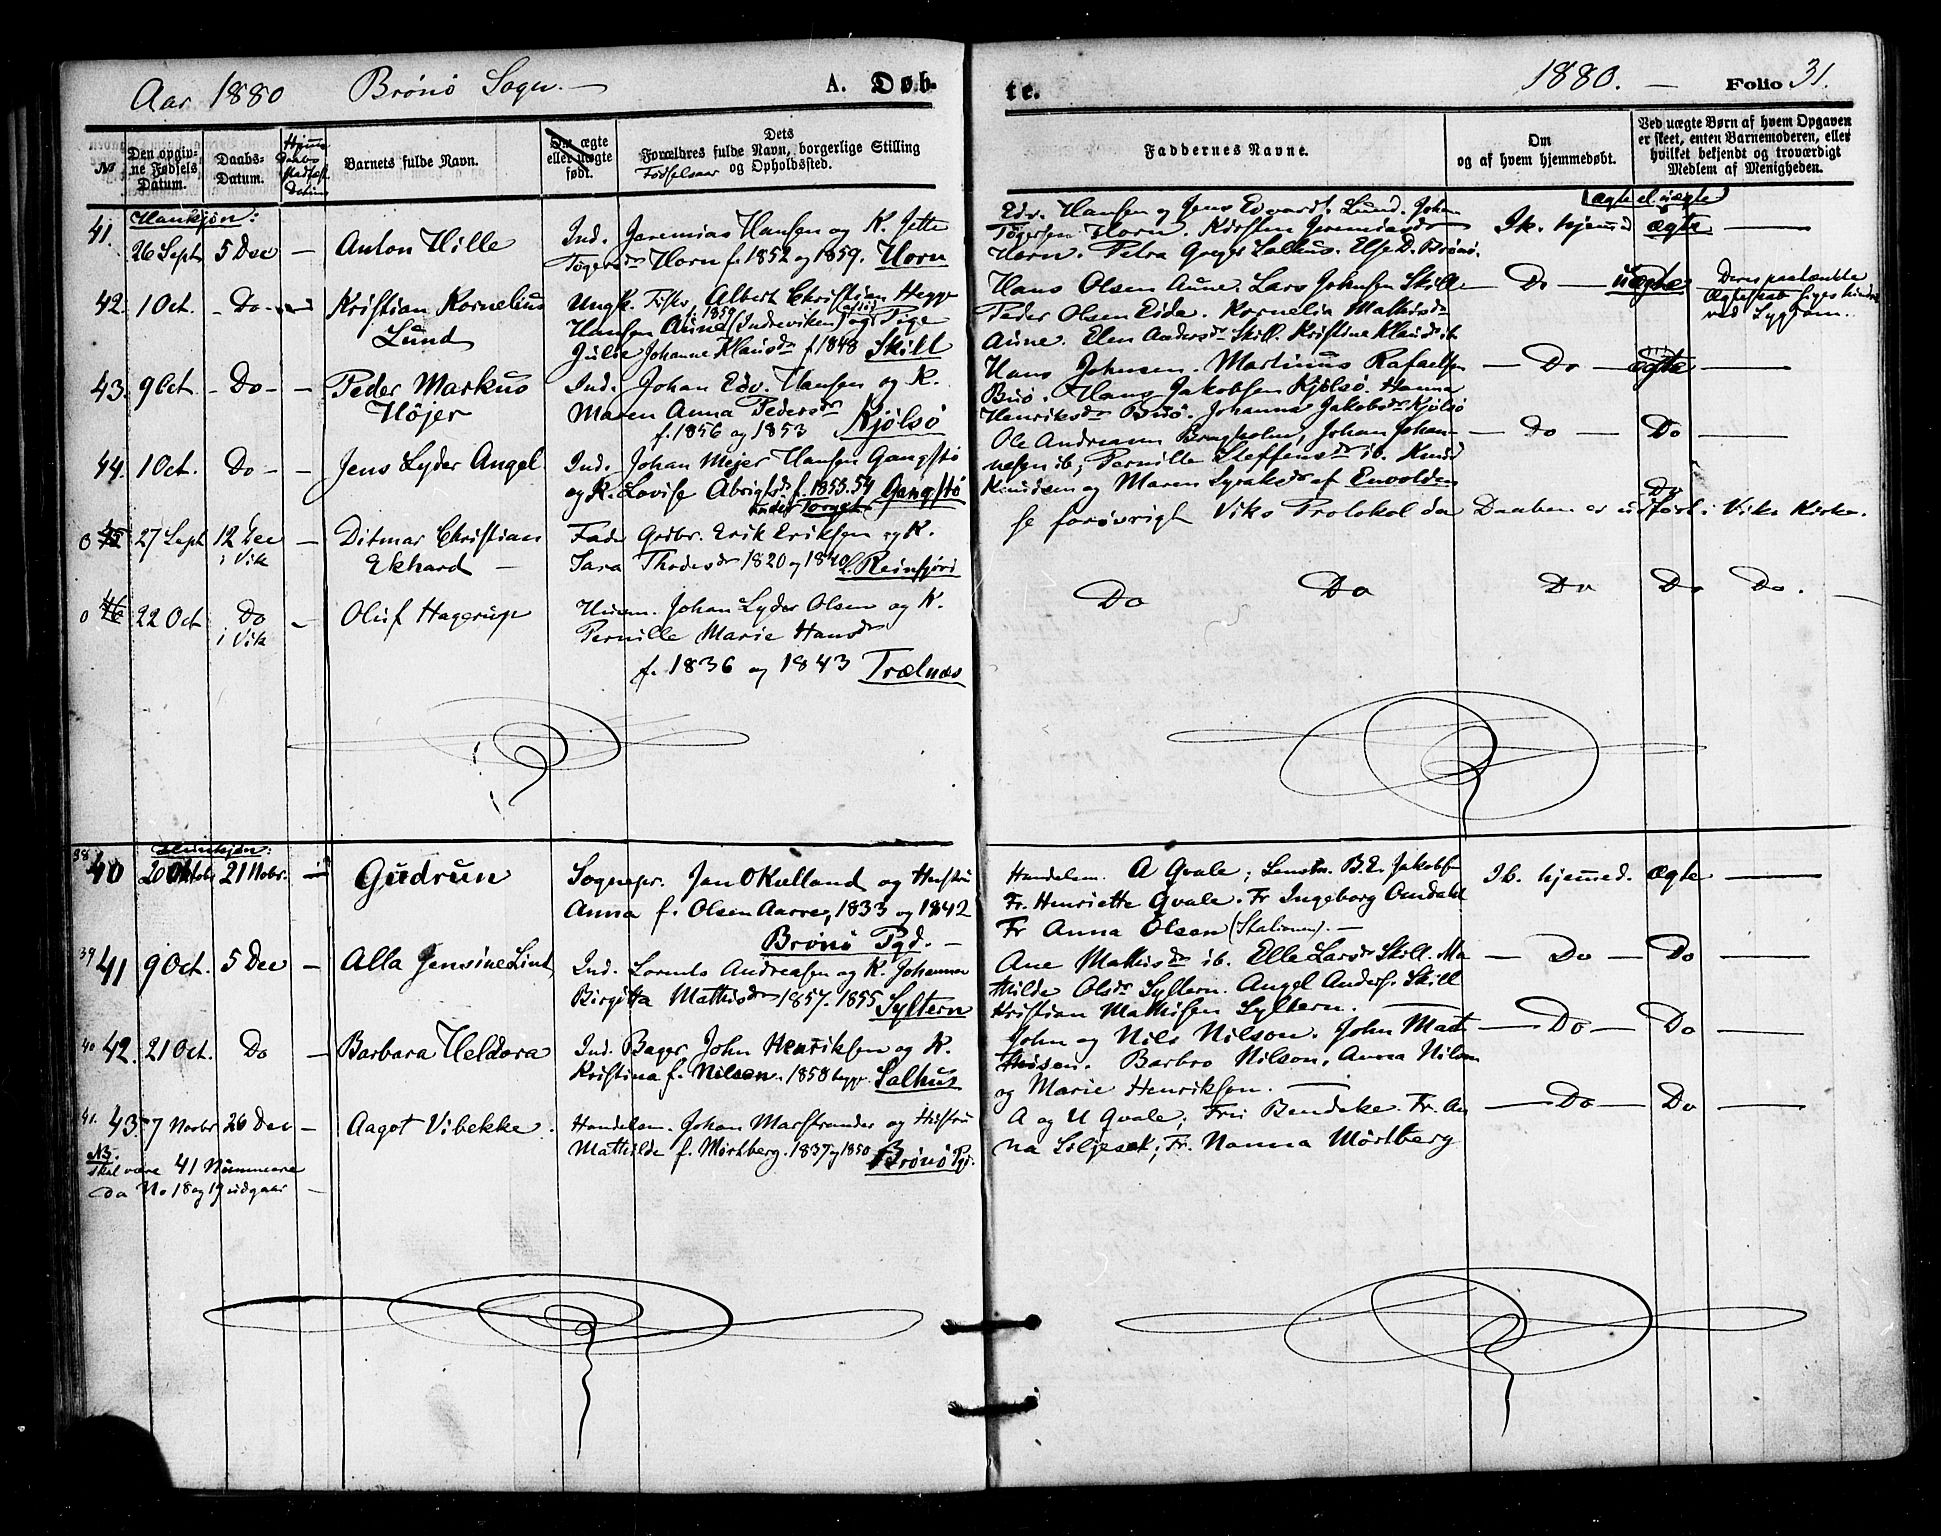 Aar 1880 Brönö Sogn. — A. Døb-
te. 1880. — Folio 31.
№
Den opgiv-
ne Fødsels
Datum.
Daabs-
Datum.
Hjemme
daabs
stadfæst.
Datum
Barnets fulde Navn.
Om ægte
eller uægte
født.
Dets
Forældres fulde Navn, borgerlige Stilling
og Opholdssted.
Fødselsaar
Faddernes Navne.
Om
og af hvem hjemmedøbt.
Ved uægte Børn af hvem Opgaven
er skeet, enten Barnemoderen, eller
hvilket bekjendt og troværdigt
Medlem af Menigheden.
ægte el. uægte
Mankjön:
41. 26 Sept 5 Dec — Anton Hille
Ind. Jeremias Hansen og K. Jette
Tögersdr Horn f. 1852 og 1859. Horn
Edv. Hansen og Jens Edvards. Lund. Johan
Tögersen Horn. Kirsten Jeremiasdr
Horn. Petra Gregers Salhus. Else D. Brönö.
Ik. hjemmed ægte —
42. 1 Oct. - Do - Kristian Kornelius
Lund
Ungk. Fisker Albert Christian Hegge
f. 1859
Hansen Aune (Indreviken) og Pige
Julie Johanne Klausdr f. 1848 Skill
Hans Olsen Aune. Lars Johnsen Skill
Peder Olsen Eide. Kornelia Mathisdr
Aune. Elen Andersdr Skill. Kristine Klausdr ib.
— Do — uægte
Deres paatænkte
Ægteskab siges hindret
ved Sygdom.
43. 9 Oct. - Do - - Peder Markus
Höjer
Ind. Johan Edv. Hansen og K.
Maren Anna Pedersdr
f. 1856 og 1853 Kjölsö
Hans Johnsen. Martinus Rafaelsen
Buö. Hans Jakobsen Kjölsö. Hanna
Henriksdr Buö. Johanna Jakobsdr Kjölsö
— Do — ægte —
44. 1 Oct. Do - - Jens Lyder Angel
Ind. Johan Mejer Hansen Gangstö
og K. Lovise Abrigtsdr f. 1853. 54 Gangstö
under Torget
Ole Andreasen Brugholm, Johan Johan-
nesen ib; Pernille Steffensdr ib. Knud
Knudsen og Maren Syraksdr af Envolden
— Do — Do —
0 45 27 Sept 12 Dec
i Vik
— Ditmar Christian
Ekhard —
Fader Grdbr. Erik Eriksen og K.
Sara Thodesdr 1820 og 1840 L. Reinfjord
Do
se forövrigt Viks Protokol da Daaben er udfört i Viks Kirke.
0 46 22 Oct Do
i Vik
— Oluf Hagerup
Husm. Johan Lyder Olsen og K.
Pernille Marie Hansdr
f. 1836 og 1843 Trælnæs
Do Do Do Do Do. —
Kvindekjön:
38 40 20 Oktob 21 Nobr. — Gudrun
Sognepr. Jan O Kielland og Hustru
Anna f. Olsen Aarre, 1833 og 1842
Brönö Pgd. —
Handelsm. A Qvale; Lensm. B. E. Jakobsen
Fr. Henriette Qvale. Fr Ingeborg Omdahl
Fr Anna Olsen (Stationen). —
Ik. hjemmed. ægte —
39 41 9 Oct. 5 Dec — Alla Jensine Lind
Ind. Lornts Andreasen og K. Johanna
Birgitta Mathisdr 1857. 1855 Syltern
Ane Mathisdr ib. Elle Larsdr Skill. Ma-
thilde Olsdr Syltern. Angel Anders. Skill
Kristian Mathisen Syltern. —
— Do — Do —
40 42. 21 Oct. Do — Barbara Heldora
Ind. Bager John Henriksen og K.
Kristina f. Nilson. 1858 begge Salhus
John og Nils Nilson. John Mat-
hisen. Barbro Nilson, Anna Nilson
og Marie Henriksen. —
— Do — Do —
41. 43. 7 Novbr 26 Dec — Aagot Vibekke.
Handelsm. Johan Marstrander og Hustru
Mathilde f. Mörtberg. 1837 og 1850 Brönö Pgd.
A og U Qvale; Fru Bendeke. Fr. An-
na Liljesek; Fr. Nanna Mörtberg
— Do — Do —
NB.
skal være 41 Nummere
da No 18 og 19 udgaar —